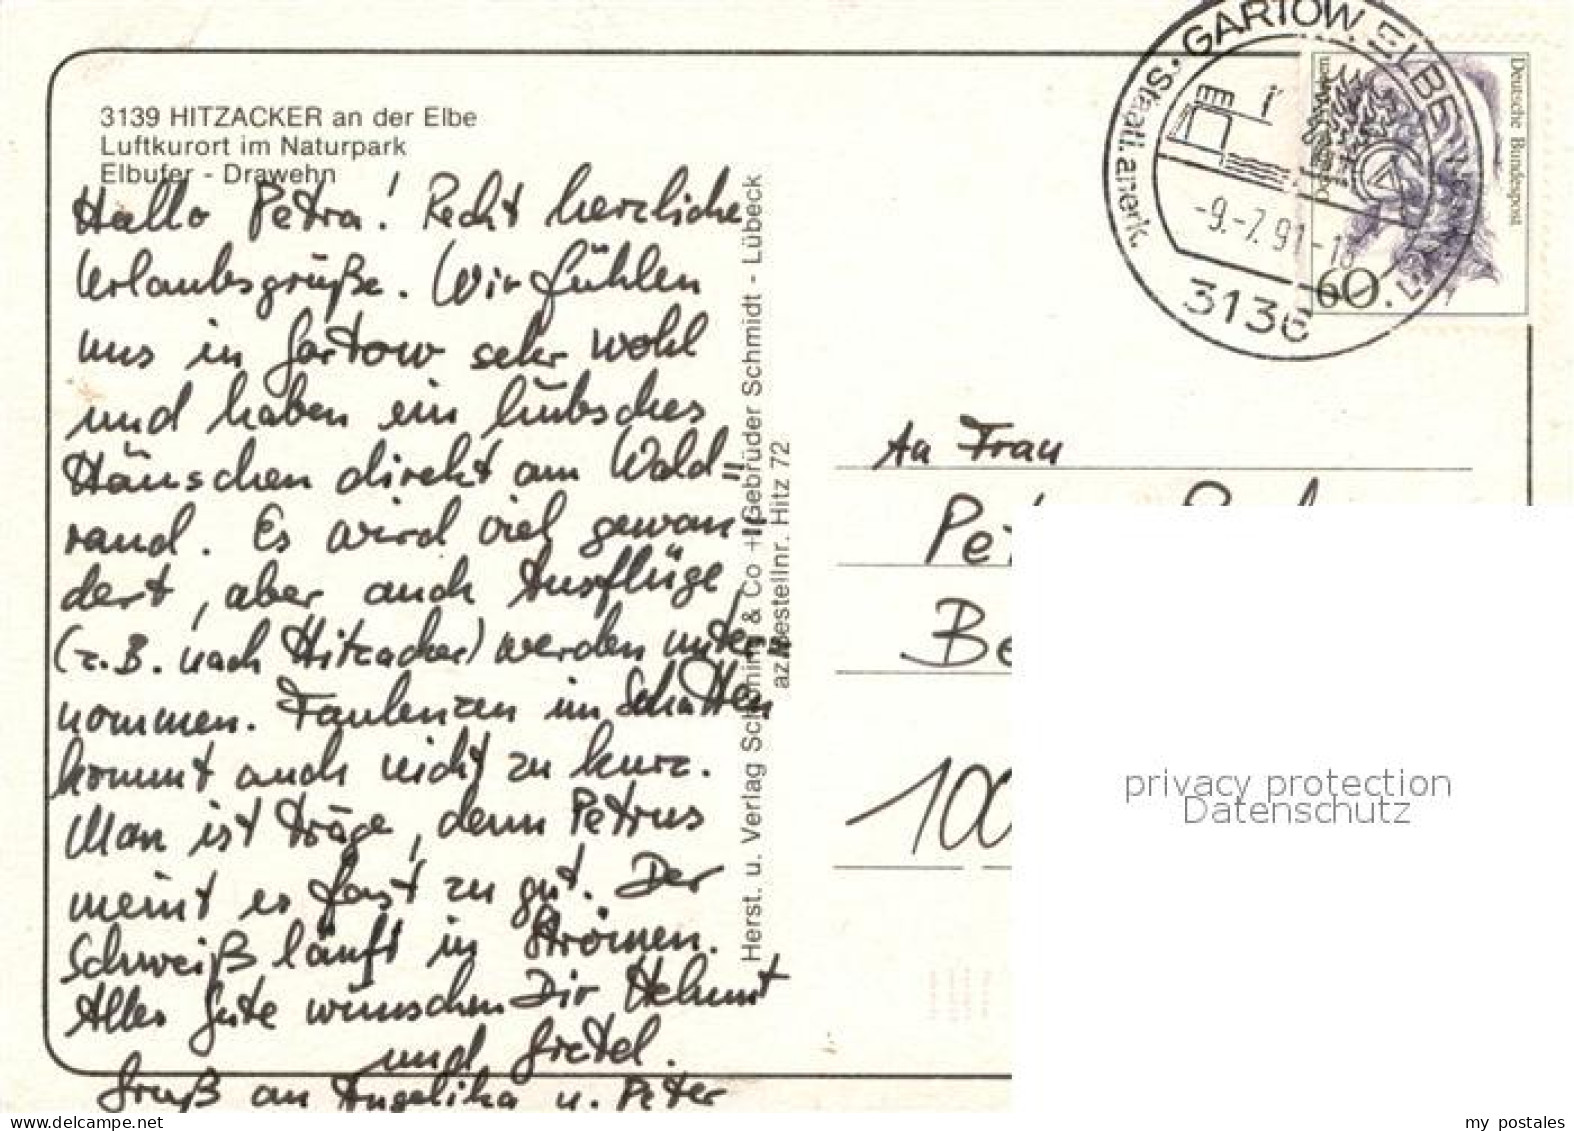 3139 HITZACKER an der Elbe
Luftkurort im Naturpark
Elbufer - Drawehn
Hallo Petra! Recht herzliche
Urlaubsgrüße. Wir fühlen
uns in Gartow sehr wohl
und haben ein hübsches
Häuschen direkt am Wald=
rand. Es wird viel gewan=
dert, aber auch Ausflüge
(z.B. nach Hitzacker) werden unter=
nommen. Faulenzen im Schatten
kommt auch nicht zu kurz.
Man ist träge, denn Petrus
meint es fast zu gut. Der
Schweiß läuft in Strömen.
Alles Gute wünschen Dir Helmut
und Gretel.
Gruß an Angelika u. Peter
Herst. u. Verlag Schöning & Co + Gebrüder Schmidt - Lübeck
Bestellnr. Hitz 72
GARTOW, ELBE
Staatl. anerk.
-9.-7.91-18
3136
Deutsche Bundespost
60
An Frau
privacy protection
Datenschutz
delcampe.net
my_postales